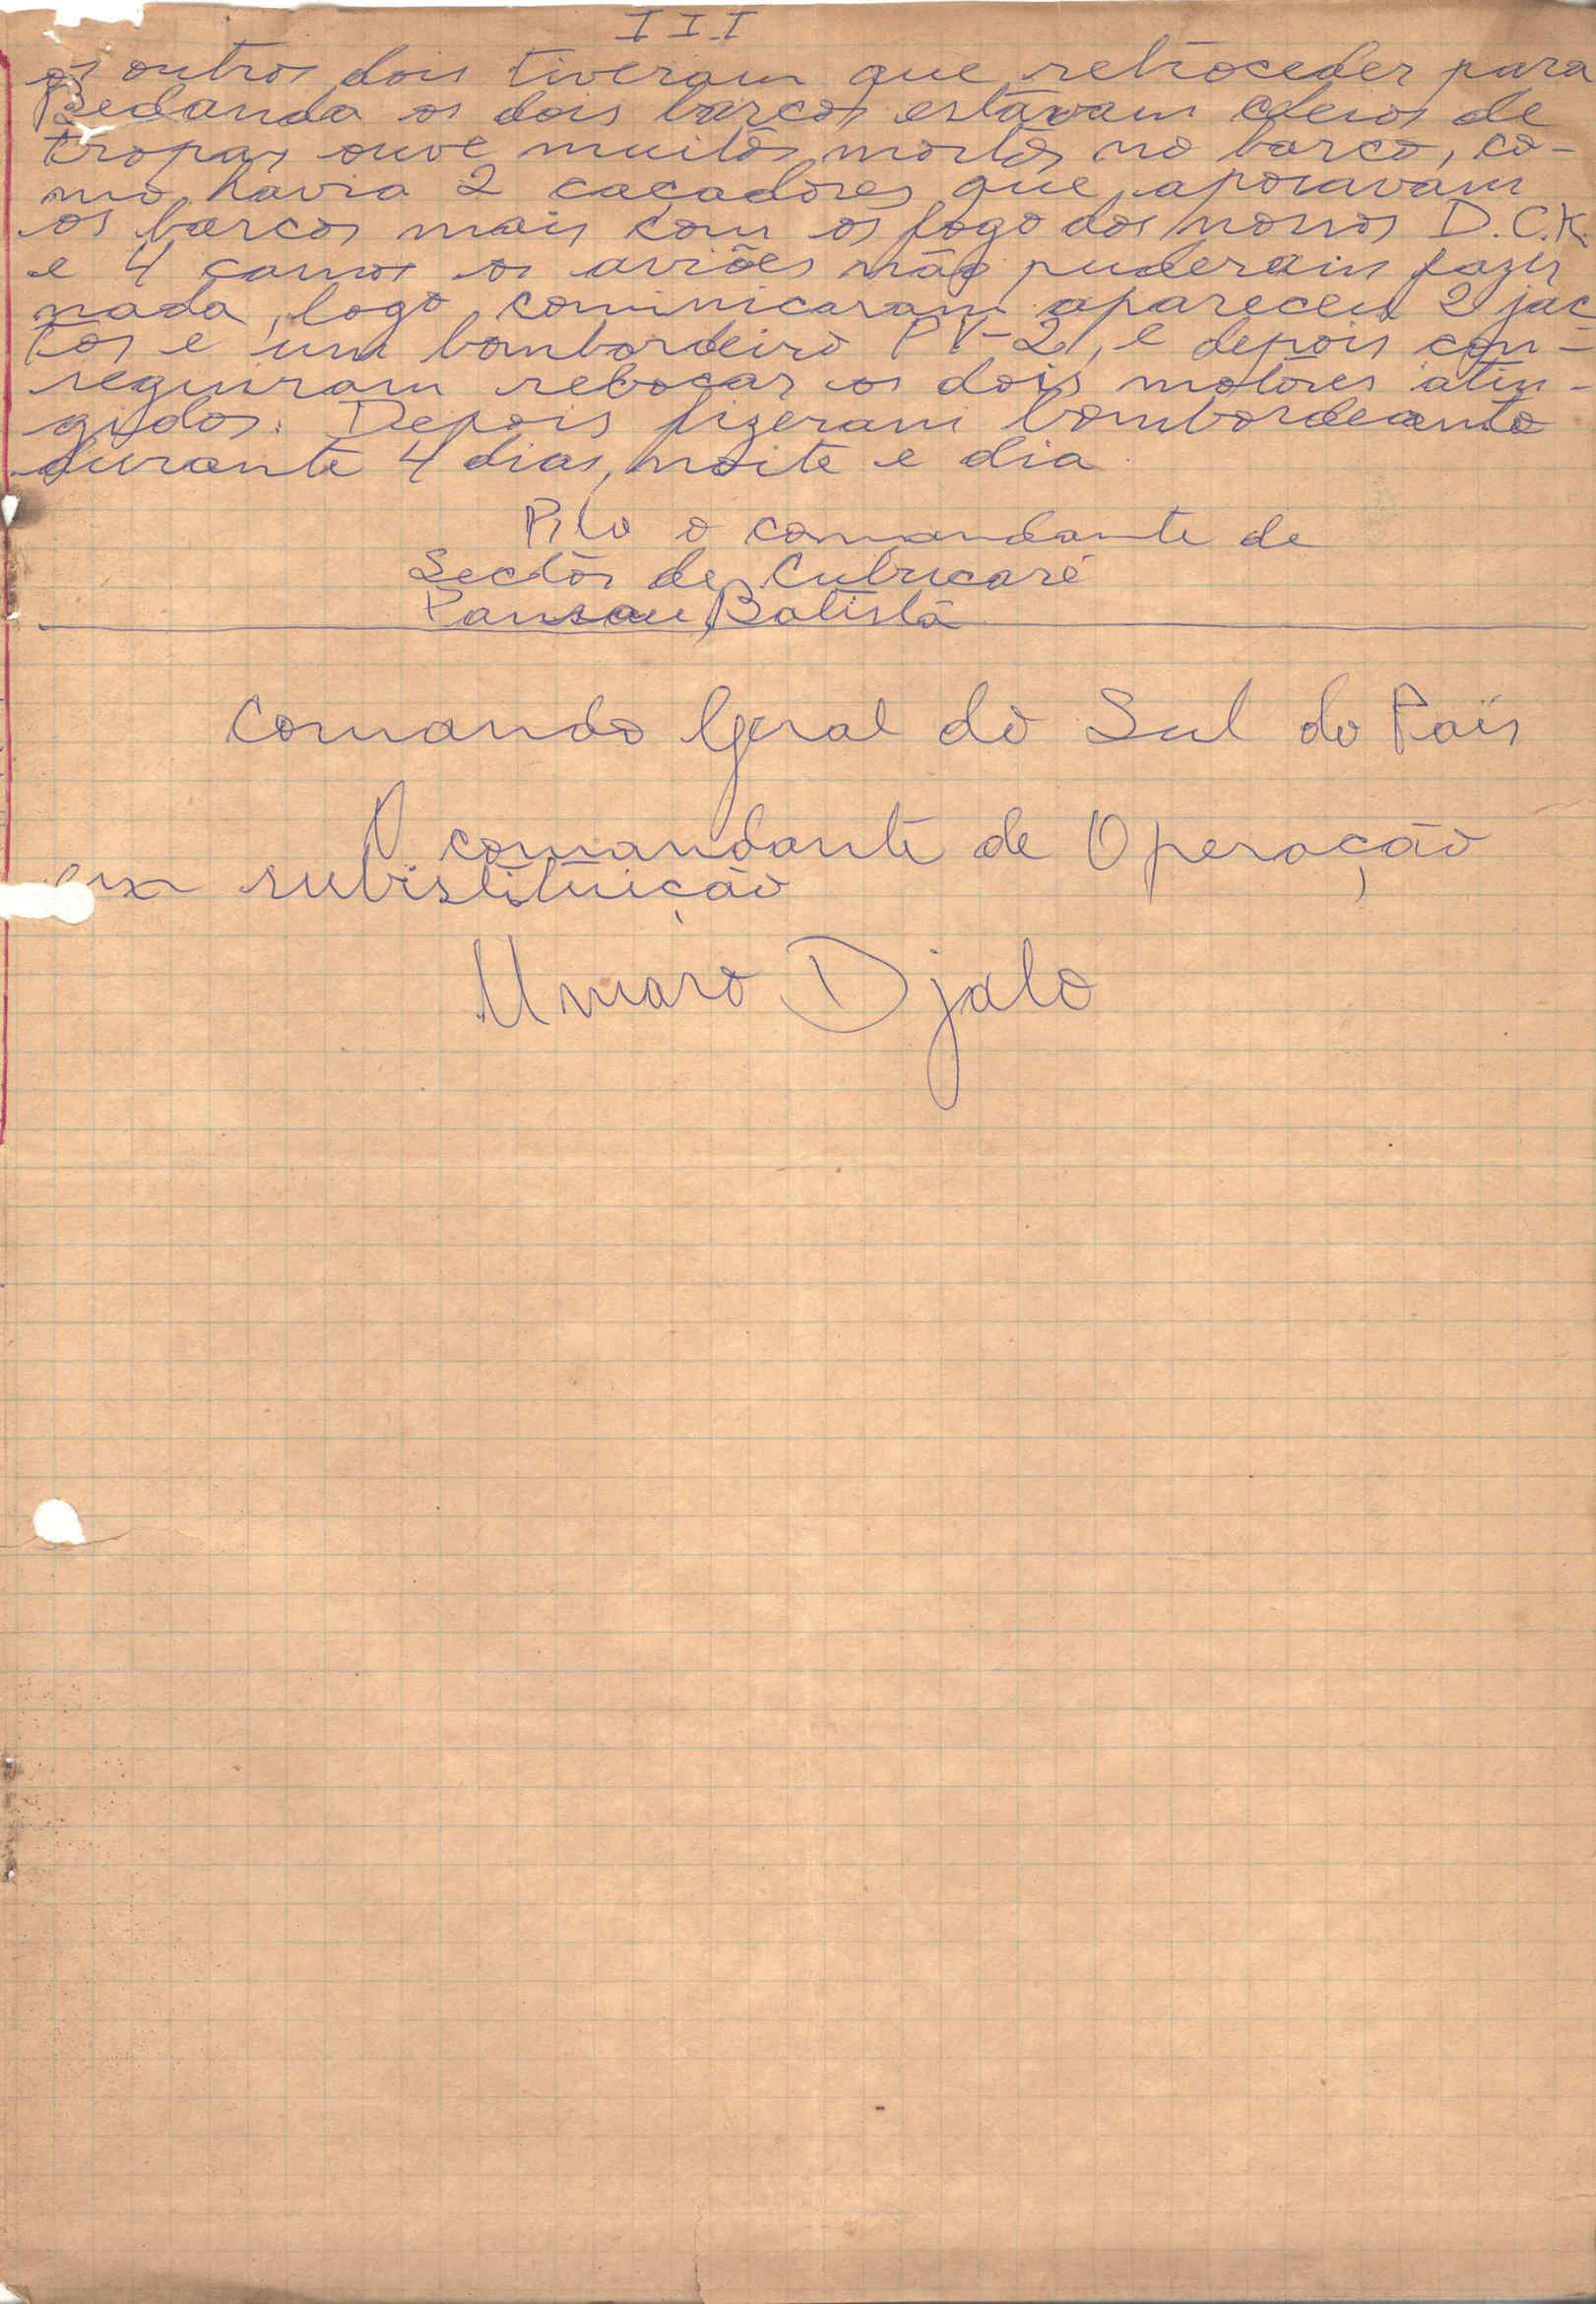 III
os outros dois tiveram que retroceder para
Bedanda os dois barcos estavam cheios de
tropas ouve muitos mortos no barco, co-
mo havia 2 caçadores que apoiavam
os barcos mais com os fogo dos nossos D.C.K.
e 4 canos os aviões não puderam fazer
nada, logo cominicaram apareceu 2 jac
tos e um bombordeiro PV-2, e depois con-
seguiram rebocar os dois motores atin-
gidos. Depois fizeram bombordeamto
durante 4 dias, noite e dia.
o comandante de
Sector de Cubucaré
Pansau Batista
Comando Geral do Sul do País
O comandante de Operação
em subistituição
Umaro Djalo